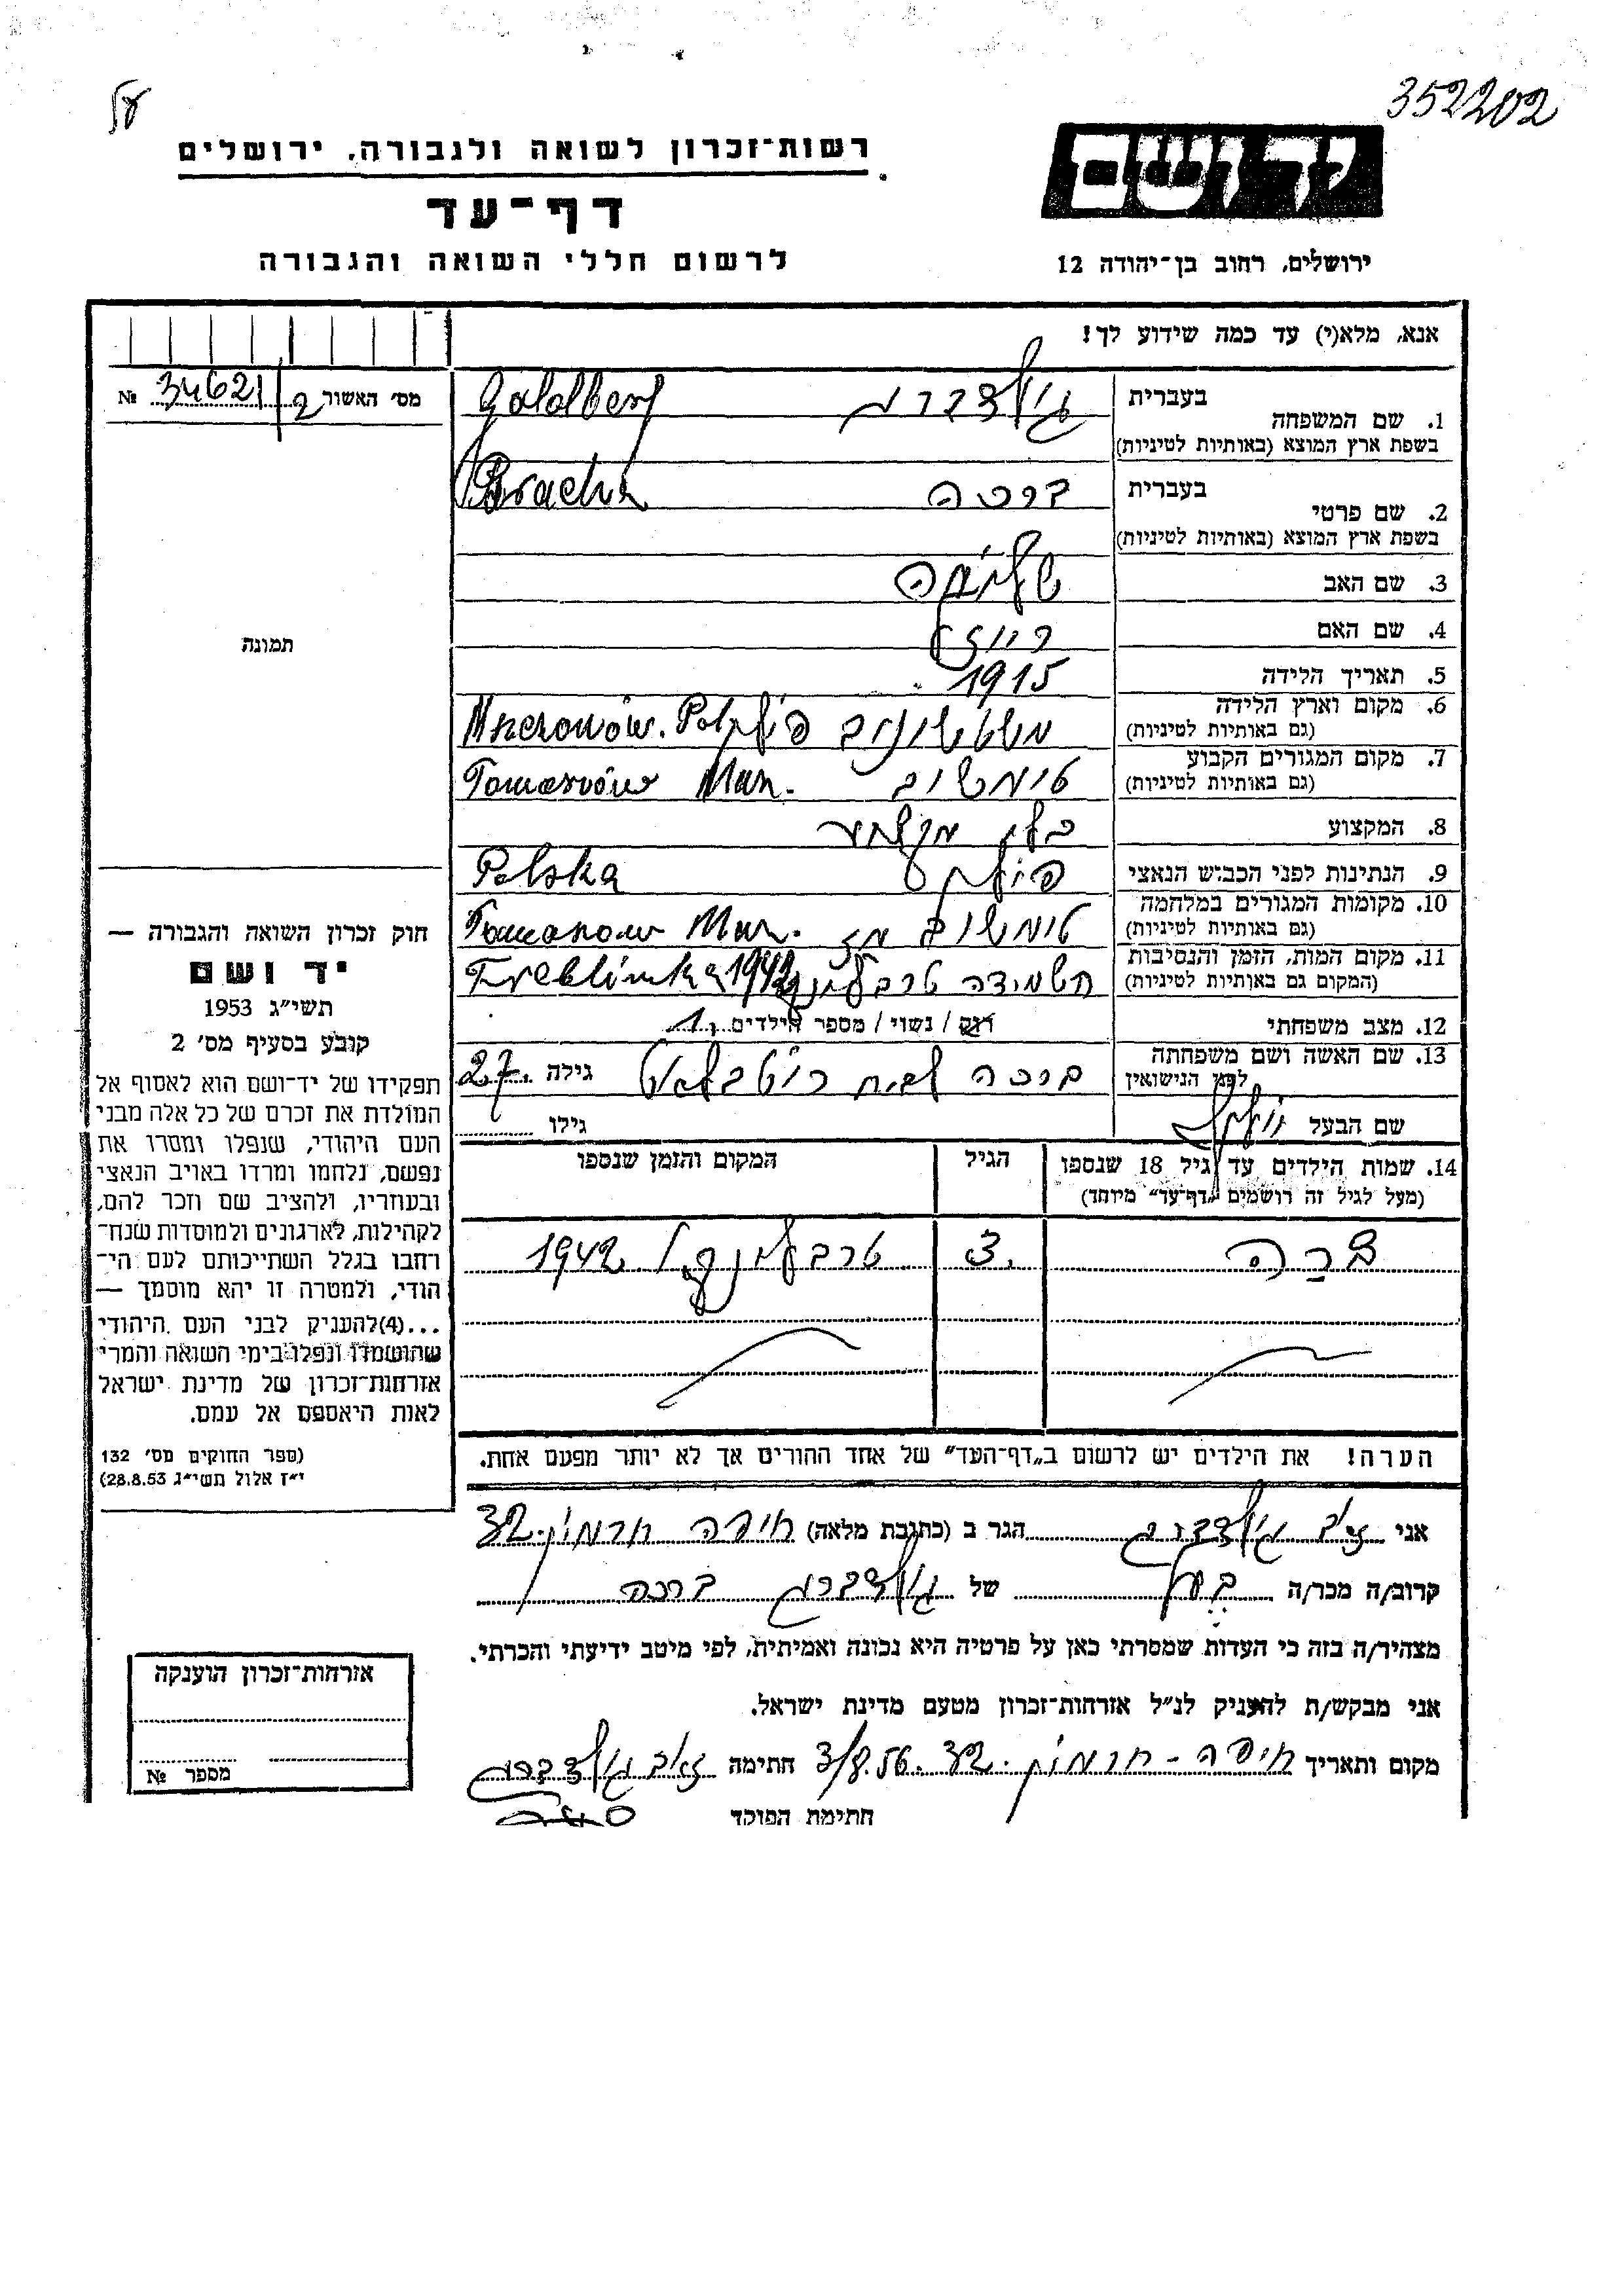 352202
רשות־זכרון לשואה ולגבורה, ירושלים
יד ושם
דף־עד
לרשום חללי השואה והגבורה
ירושלים, רחוב בן־יהודה 12
אנא, מלא(י) עד כמה שידוע לך!
מס׳ האשור 2 34621 №
1. שם המשפחה
בעברית גולדברג Goldberg
בשפת ארץ המוצא (באותיות לטיניות)
2. שם פרטי
בעברית ברכה Bracha
בשפת ארץ המוצא (באותיות לטיניות)
3. שם האב
4. שם האם
5. תאריך הלידה 1915
6. מקום וארץ הלידה
(גם באותיות לטיניות)
7. מקום המגורים הקבוע Tomaszów Maz.
(גם באותיות לטיניות)
8. המקצוע
9. הנתינות לפני הכבוש הנאצי Polska
10. מקומות המגורים במלחמה Tomaszow Maz.
(גם באותיות לטיניות)
11. מקום המות, הזמן והנסיבות השמידה טרבלינקה Treblinka 1942
(המקום גם באותיות לטיניות)
12. מצב משפחתי רוק / נשוי / מספר הילדים 1
13. שם האשה ושם משפחתה
לפני הנישואין ברכה לבית גילה 27
שם הבעל גילו
14. שמות הילדים עד גיל 18 שנספו
(מעל לגיל זה רושמים „דף־עד״ מיוחד)
הגיל
המקום והזמן שנספו
3 טרבלינקה 1942
הערה! את הילדים יש לרשום ב„דף־העד״ של אחד ההורים אך לא יותר מפעם אחת.
אני זאב גולדברג הגר ב (כתובת מלאה) חיפה 32
קרוב/ה מכר/ה בעל של גולדברג ברכה
מצהיר/ה בזה כי העדות שמסרתי כאן על פרטיה היא נכונה ואמיתית, לפי מיטב ידיעתי והכרתי.
אני מבקש/ת להעניק לנ״ל אזרחות־זכרון מטעם מדינת ישראל.
מקום ותאריך חיפה 32 3/8.56 חתימה זאב גולדברג
חתימת הפוקד
תמונה
חוק זכרון השואה והגבורה —
יד ושם
תשי״ג 1953
קובע בסעיף מס׳ 2
תפקידו של יד־ושם הוא לאסוף אל
המולדת את זכרם של כל אלה מבני
העם היהודי, שנפלו ומסרו את
נפשם, נלחמו ומרדו באויב הנאצי
ובעוזריו, ולהציב שם וזכר להם,
לקהילות, לארגונים ולמוסדות שנח־
רחבו בגלל השתייכותם לעם הי־
הודי, ולמטרה זו יהא מוסמך —
...(4)להעניק לבני העם היהודי
שהושמדו ונפלו בימי השואה והמרי
אזרחות־זכרון של מדינת ישראל
לאות היאספם אל עמם.
(ספר החוקים מס׳ 132
י״ז אלול תשי״ג 28.8.53)
אזרחות־זכרון הוענקה
מספר №